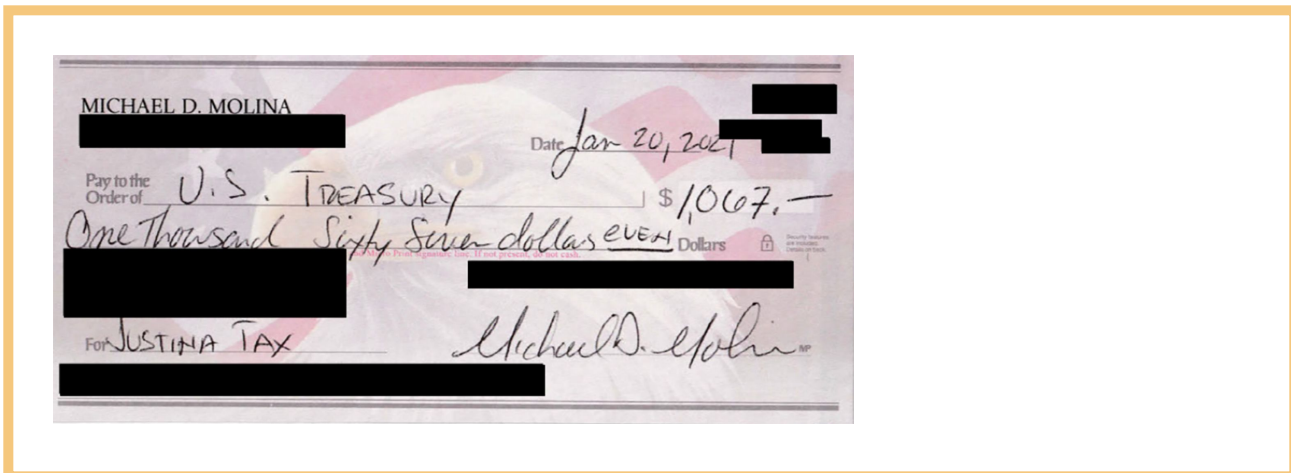 MICHAEL D. MOLINA
Date Jan 20, 2021
Pay to the
Order of U.S. TREASURY $ 1,067.—
One Thousand Sixty Seven dollars even Dollars
Security features
are included.
Details on back.
Micro Print signature line. If not present, do not cash.
For JUSTINA TAX Michael D. Molin MP